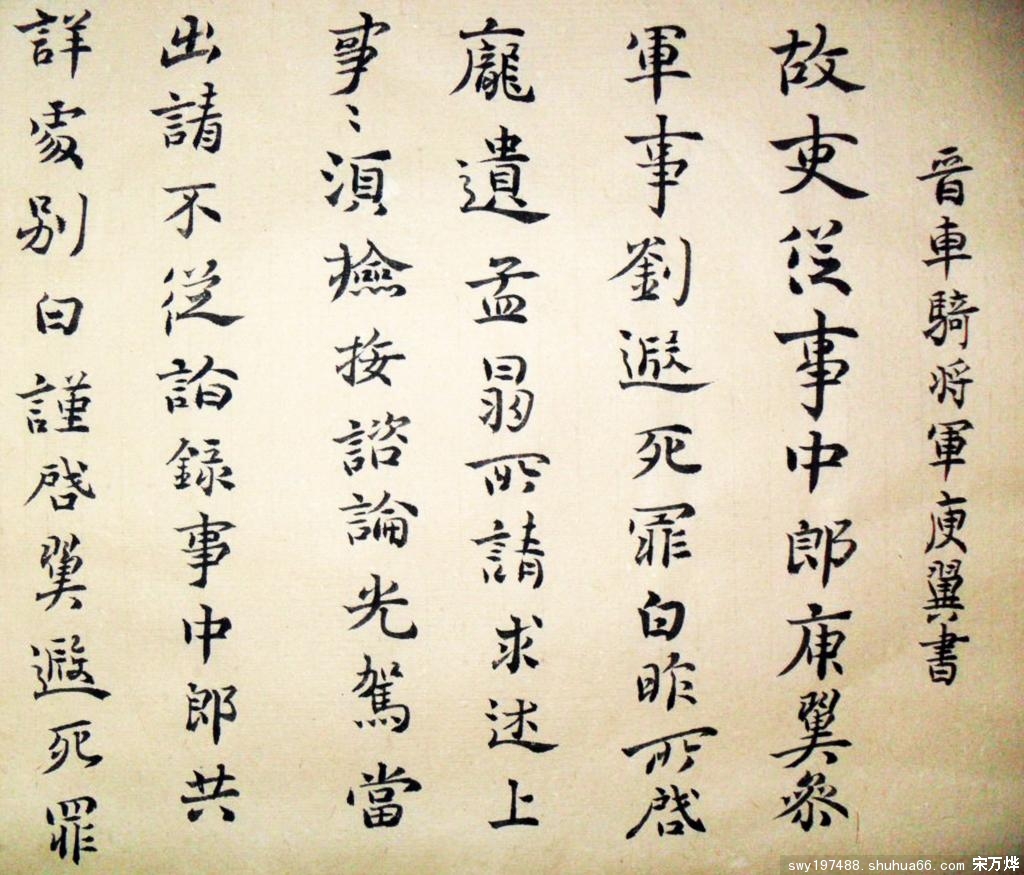 晉車騎将軍庾翼書
故吏従事中郎庾翼參
軍事劉遐死罪白昨所啓
龐遺孟曷所請求述上
事〻須撿按諮論光駕當
出請不従詣録事中郎共
詳處別白謹啓翼遐死罪
swy197488.shuhua66.com 宋万烨